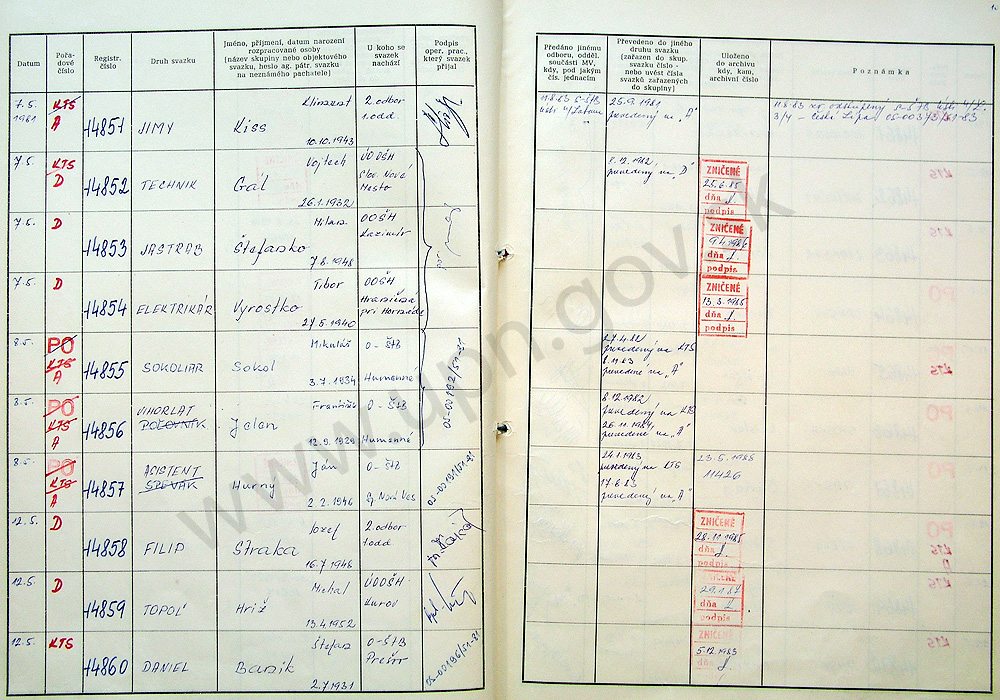 Datum
Pořa-
dové
číslo
Registr.
číslo
Druh svazku
Jméno, příjmení, datum narození
rozpracované osoby
(název skupiny nebo objektového
svazku, heslo ag. pátr. svazku
na neznámého pachatele)
U koho se
svazek
nachází
Podpis
oper. prac.,
který svazek
přijal
7.5.
1981
KTS
A
14851
JIMY
Kiss
10.10.1943
2. odbor
1. odd.
7.5.
KTS
D
14852
TECHNIK
Vojtech
Gál
26.1.1932
ÚOOŠH
Slov. Nové
Mesto
7.5.
D
14853
JASTRAB
Milan
Štefanko
7.8.1948
OOŠH
Kazimír
7.5.
D
14854
ELEKTRIKÁR
Tibor
Vyrostko
27.5.1940
OOŠH
pri Hornáde
8.5.
PO
KTS
A
14855
SOKOLIAR
Mikuláš
Sokol
3.7.1934
O-ŠtB
Humenné
8.5.
PO
KTS
A
14856
VIHORLAT
POĽOVNÍK
František
Jelen
12.9.1929
O-ŠtB
Humenné
OS-00192/S1-81
8.5.
PO
KTS
A
14857
ASISTENT
SPEVÁK
Ján
Hurný
2.2.1946
O-ŠtB
Sp. Nová Ves
OS-00191/S1-81
12.5.
D
14858
FILIP
Jozef
Straka
16.7.1946
2. odbor
1. odd
12.5.
D
14859
TOPOĽ
Michal
Hriž
13.4.1952
ÚOOŠH
Kurov
12.5.
KTS
14860
DANIEL
Štefan
Baník
2.7.1931
O-ŠTB
Prešov
OS-00196/S1-81
Předáno jinému
odboru, odděl.
součásti MV,
kdy, pod jakým
čís. jednacím
Převedeno do jiného
druhu svazku
(zařazen do skup.
svazku číslo -
nebo uvést čísla
svazků zařazených
do skupiny)
Uloženo
do archivu
kdy, kam,
archivní číslo
Poznámka
11.8.83 S-ŠtB
Ústí n/Labem
25.9.1981
prevedený na „A"
3/4 - Česká Lípa
8.12.1982
prevedený na „D"
ZNIČENÉ
25.6.85
dňa
podpis
ZNIČENÉ
9.4.1986
dňa
podpis
ZNIČENÉ
13.3.1985
dňa
podpis
27.4.82
prevedený na KTS
8.11.83
prevedené na „A"
8.12.1982
prevedený na KTS
26.11.1984
prevedené na „A"
24.1.1983
prevedený na KTS
17.8.83
prevedený na „A"
23.5.1985
11426
ZNIČENÉ
28.11.1985
dňa
podpis
ZNIČENÉ
29.1.87
dňa
podpis
ZNIČENÉ
5.12.1983
dňa
www.upn.gov.sk